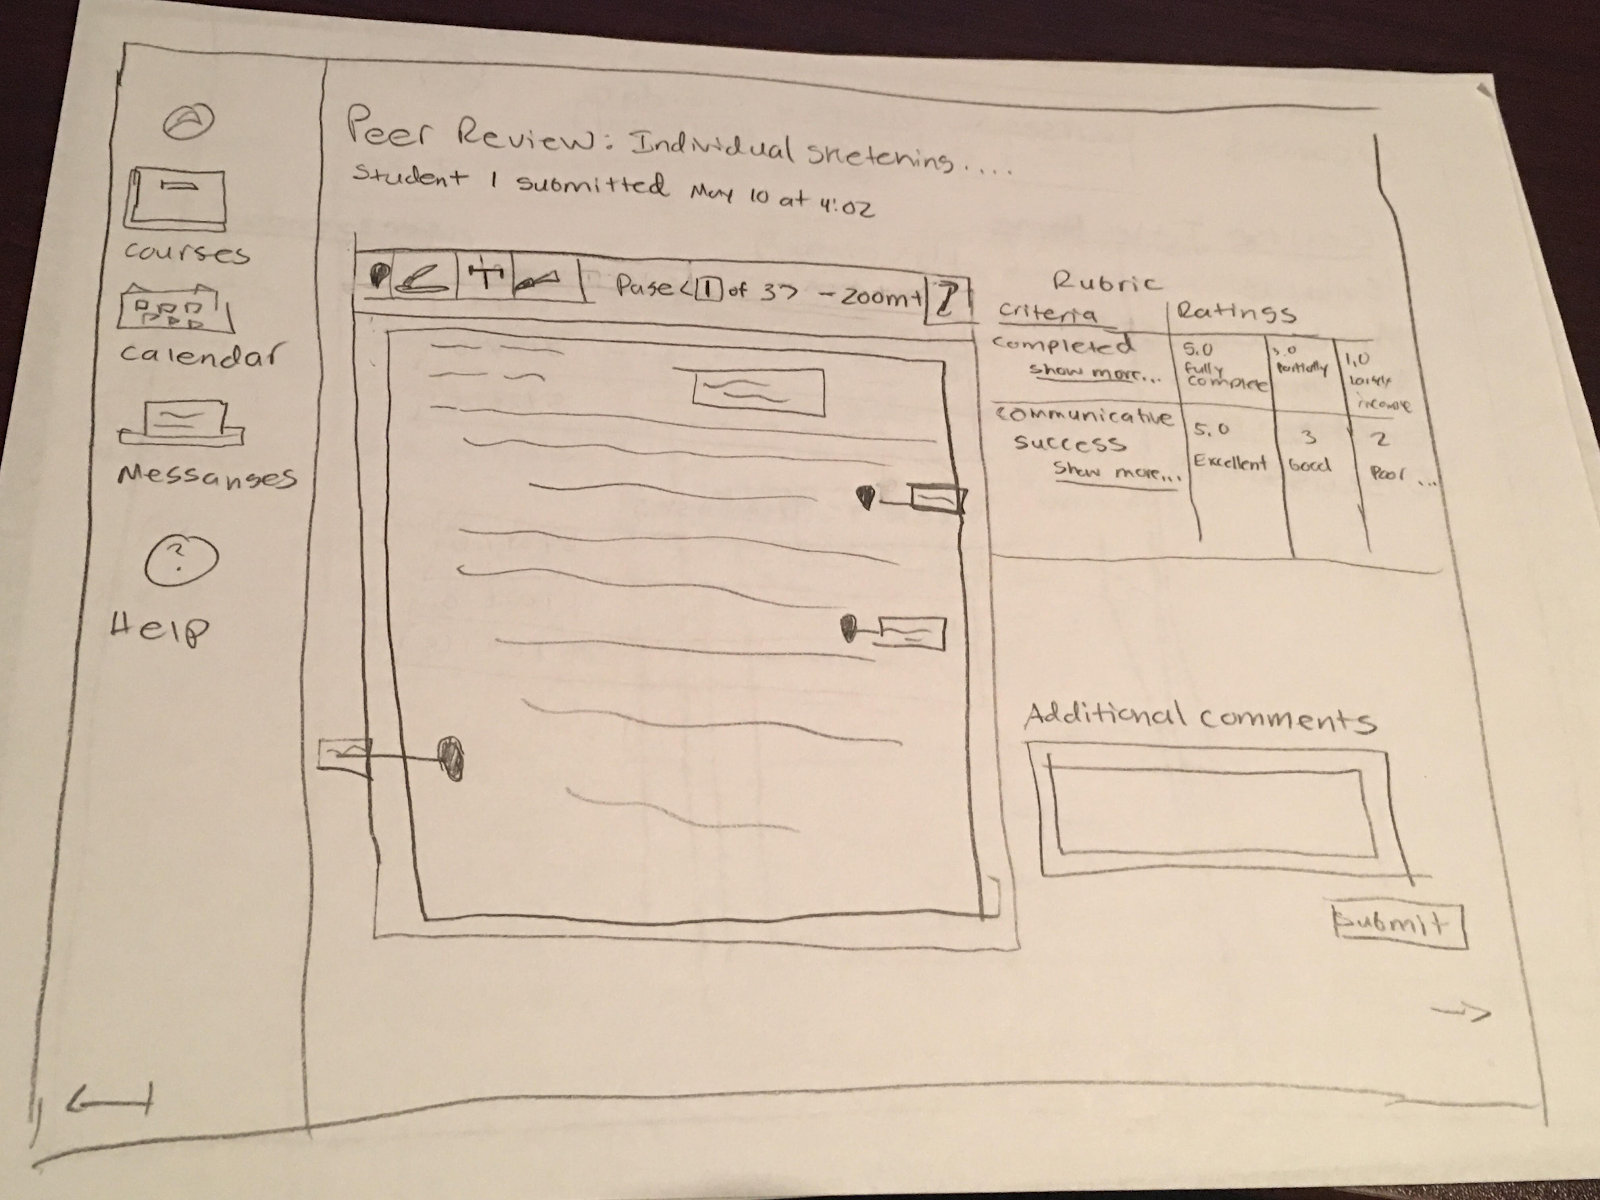 Courses
Calendar
Messanges
?
Help
Peer Review: Individual sketching....
Student 1 submitted May 10 at 4:02
T
Page < 1 of 3 > - zoom +
Rubric
Criteria Ratings
Completed
show more...
5.0
fully
complete
Partially
1.0
Communicative
success
show more...
5.0
Excellent
3
Good
2
Poor ...
Additional comments
Submit